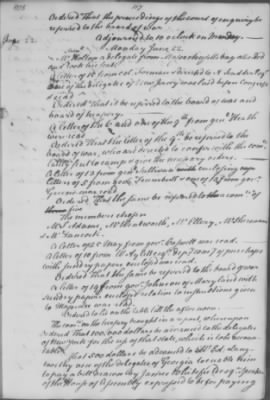 1778
117
Ordered That the proceedings of the court of enquiry be
referred to the board of war.
Adjourned to 10 o'clock on Monday.
June 22.
Monday June 22.
Mr Holten a delegate from Massachusetts bay attended
and took his seat.
A letter of 15 from col. Forman directed to N. Scudder Esqr
one of the delegates of New Jersey was laid before Congress
& read
Ordered That it be referred to the board of war and
board of treasury.
A letter of the 6 and one of the 9th from genl Heath
were read
Ordered That the letter of the 9th be referred to the
board of war, who are directed to confer with the com
and give the necessary orders.
A letter of 13 from genl Sullivan with enclosing
letters of 5 from gov. Trumbull & one of 13 from gov.
Greene was read
Ordered That the same be referred to the com of
three
The members chosen
Mr S. Adams, Mr Wentworth, Mr Ellery, Mr Sherman
A letter of 2 May from govr was read.
A letter of 10 from W Aylett Dy com gl of purchases
with sundry papers enclosed was read.
Ordered That the same be referred to the board of war
A letter of 14 from govr Johnson of Maryland with
sundry papers enclosed relative to instructions given
to was read
Ordered to lie on the table till the afternoon.
The com. on the treasury brought in a report, whereupon
Ordered That 100,000 dollars be advanced to the delegates
of New York for the use of that state, which is to be accountable
That 500 dollars be advanced to Ed. Langworthy
one of the delegates of Georgia to enable him
to pay a bill drawn by James Whitefield Esqr Speaker
of the House of Assembly expressed to be for paying